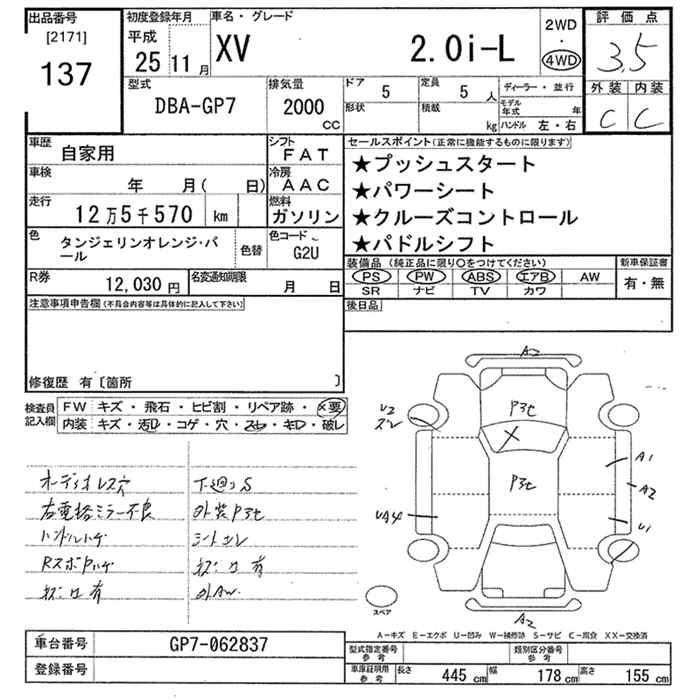 出品番号
[2171]
137
初度登録年月
平成
25 11 月
車名・グレード
XV 2.0i-L
2WD
・
4WD
評価点
3.5
外装 内装
C C
型式
DBA-GP7
排気量
2000
CC
ドア 5
形状
定員 5 人
積載 kg
ディーラー・並行
モデル年式 年
ハンドル 左・右
車歴
自家用
シフト
FAT
車検
年 月( 日)
冷房
AAC
走行
12万5千570 km
燃料
ガソリン
色
タンジェリンオレンジ・パール
色替
色コード
G2U
R券
12,030 円
名変通知期限
月 日
セールスポイント(正常に機能するものに限ります)
★プッシュスタート
★パワーシート
★クルーズコントロール
★パドルシフト
装備品 (純正品に限り〇をつけてください)
新車保証書
PS PW ABS エアB AW
SR ナビ TV カワ
有・無
後日品
注意事項申告欄(不具合内容等は具体的に記入して下さい)
修復歴 有〔箇所 〕
検査員記入欄
FW キズ・飛石・ヒビ割・リペア跡・×要
内装 キズ・汚れ・コゲ・穴・スレ・キレ・破レ
オーディオレス穴
右電格ミラー不良
ハンドルハゲ
下廻りS
外装Pヨセ
シートスレ
外AW.
A2
Pヨセ
X
U2
A1
Pヨセ
A2
UA4
U1
スペア
A2
A-キズ E-エクボ U-凹み W-補修跡 S-サビ C-腐食 XX-交換済
車台番号
GP7-062837
登録番号
型式指定番号
参考
類別区分番号
参考
車庫証明用
参考
長さ 445 cm 幅 178 cm 高さ 155 cm